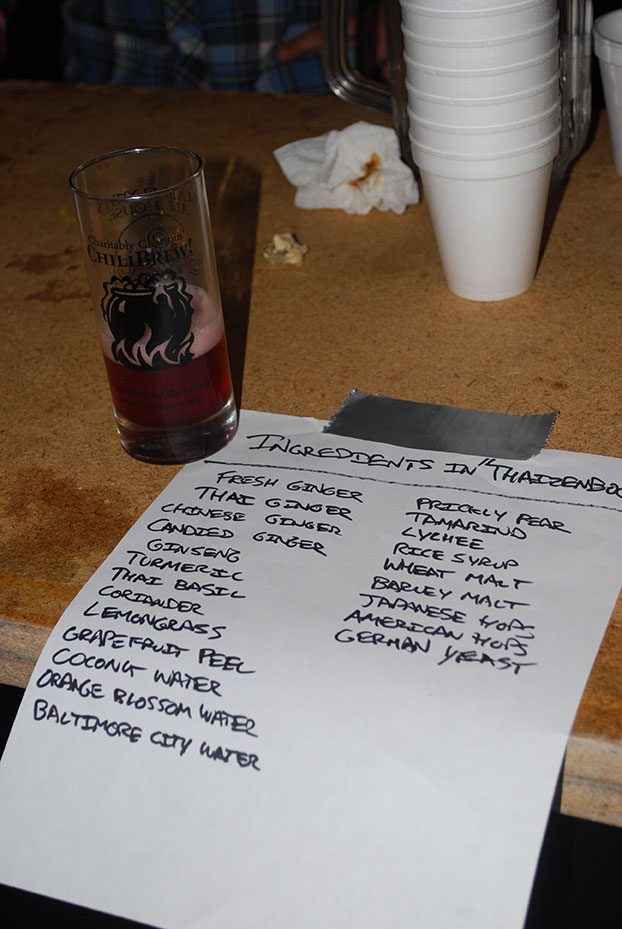 Charitably Chaotic
CHILIBREW!
INGREDDENTS IN "THAIZENBOC
FRESH GINGER
THAI GINGER
CHINESE GINGER
CANDIED GINGER
GINSENG
TURMERIC
THAI BASIL
CORIANDER
LEMONGRASS
GRAPEFRUIT PEEL
COCONUT WATER
ORANGE BLOSSOM WATER
BALTIMORE CITY WATER
PRICKLY PEAR
TAMARIND
LYCHEE
RICE SYRUP
WHEAT MALT
BARLEY MALT
JAPANESE HOPS
AMERICAN HOPS
GERMAN YEAST